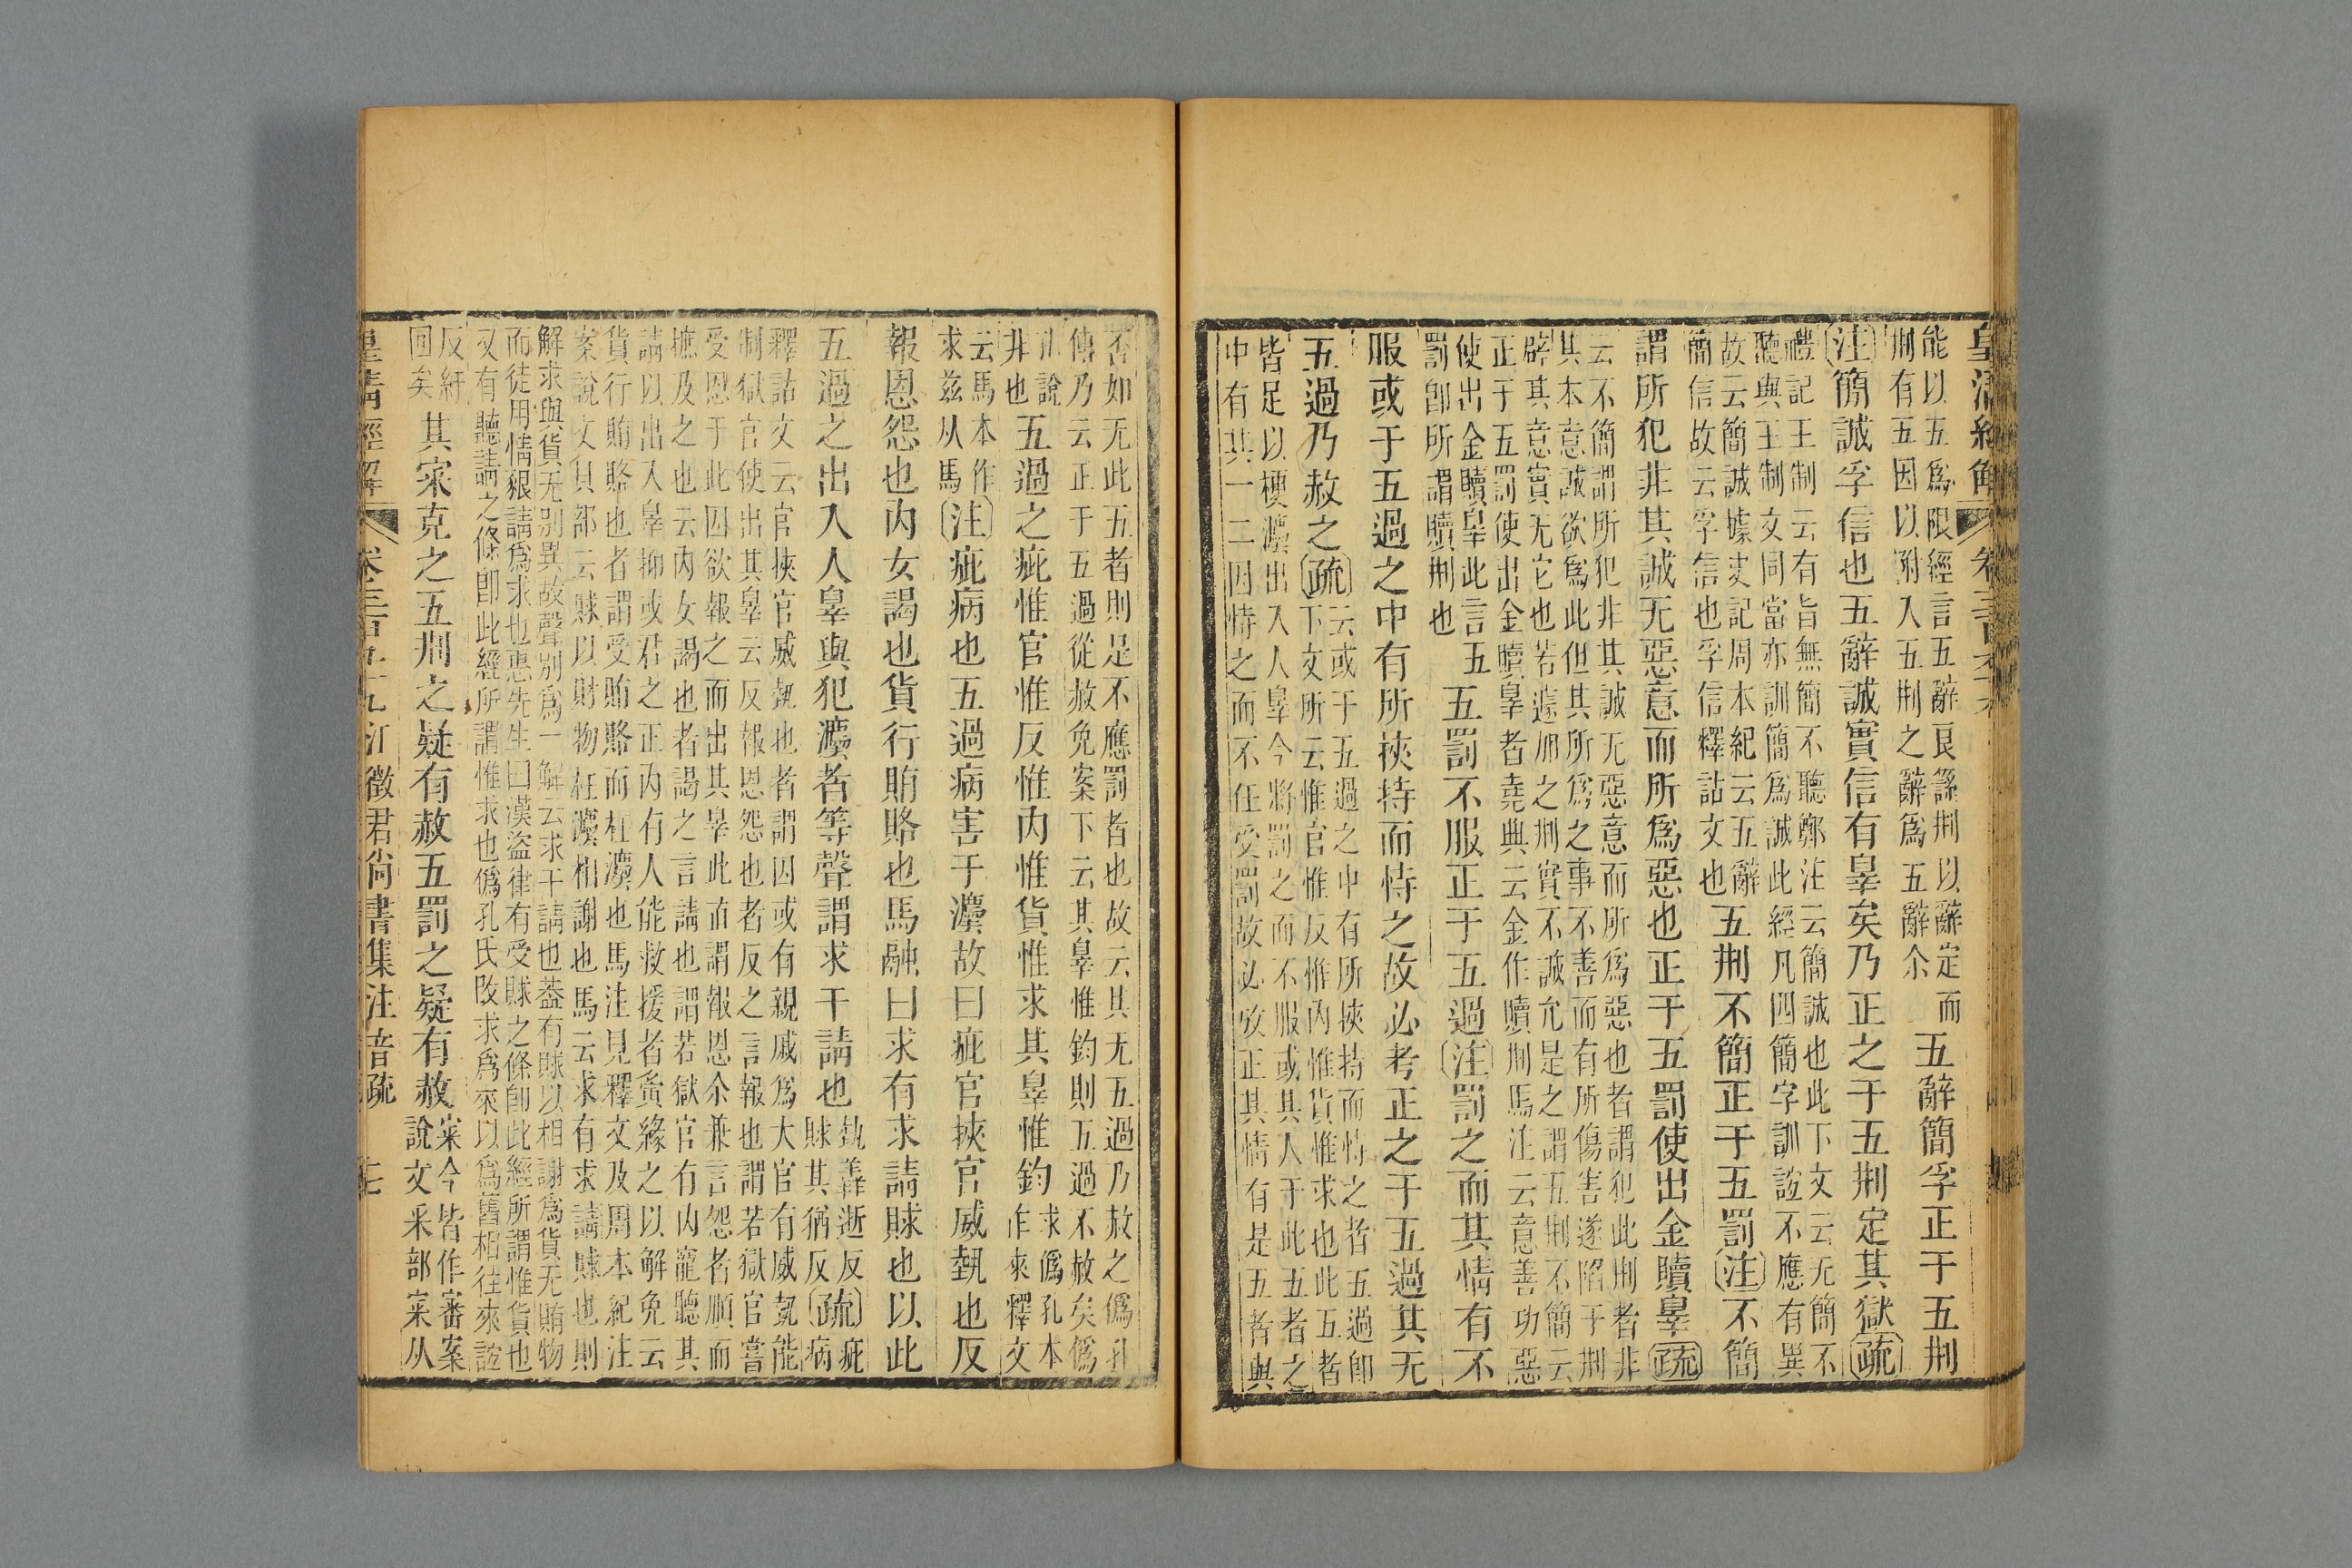 皇清經解
能以五為限經言五辭艮繇刑以辭定而
刑有五因以附入五刑之辭為五辭尒
五辭簡孚正于五刑
注簡誠孚信也五辭誠實信有辠矣乃正之于五刑定其獄疏
禮記王制云有旨無簡不聽鄭注云簡誠也此下文云无簡不
聽與王制文同當亦訓簡為誠此經凡四簡字訓誼不應有異
故云簡誠據史記周本紀云五辭
簡信故云孚信也孚信釋詁文也
五刑不簡正于五罰注不簡
謂所犯非其誠无惡意而所為惡也正于五罰使出金贖辠疏
云不簡謂所犯非其誠无惡意而所為惡也者謂犯此刑者非
其本意誠欲為此但其所為之事不善而有所傷害遂陷于刑
辟其意實无它也若遽加之刑實不誠允是之謂五刑不簡云
正于五罰使出金贖辠者堯典云金作贖刑馬注云意善功惡
使出金贖辠此言五
罰卽所謂贖刑也
五罰不服正于五過注罰之而其情有不
服或于五過之中有所挾持而恃之故必考正之于五過其无
五過乃赦之疏
云或于五過之中有所挾持而恃之者五過卽
下文所云惟官惟反惟內惟貨惟求也此五者
皆足以梗灋出入人辠今將罰之而不服或其人于此五者之
中有其一二因恃之而不任受罰故必攷正其情有是五者與
否如无此五者則是不應罰者也故云其无五過乃赦之偽孔
傳乃云正于五過從赦免案下云其辠惟鈞則五過不赦矣偽
孔說
非也
五過之疵惟官惟反惟內惟貨惟求其辠惟鈞
求偽孔本
作來釋文
云馬本作
求茲从馬
注疵病也五過病害于灋故曰疵官挾官威埶也反
報恩怨也內女謁也貨行賄賂也馬融曰求有求請賕也以此
五過之出入人辠與犯灋者等聲謂求干請也
埶善逝反
賕其猶反
疏
疵
病
釋詁文云官挾官威埶也者謂囚或有親戚為大官有威埶能
制獄官使出其辠云反報恩怨也者反之言報也謂若獄官嘗
受恩于此囚欲報之而出其辠此直謂報恩尒兼言怨者順而
摭及之也云內女謁也者謁之言請也謂若獄官有內寵聽其
請以出入辠抑或君之正內有人能救援者夤緣之以解免云
貨行賄賂也者謂受賄賂而枉灋也馬注見釋文及周本紀注
案說文貝部云賕以財物枉灋相謝也馬云求有求請賕也則
解求與貨无別異故聲別為一解云求干請也葢有賕以相謝為貨无賄物
而徒用情貇請為求也惠先生曰漢盜律有受賕之條卽此經所謂惟貨也
又有聽請之條卽此經所謂惟求也偽孔氏改求為來以為舊相往來誼
反紆
回矣
其宷克之五刑之疑有赦五罰之疑有赦
宷今皆作審案
說文釆部宷从
皇清經解 江徵君尚書集注音疏